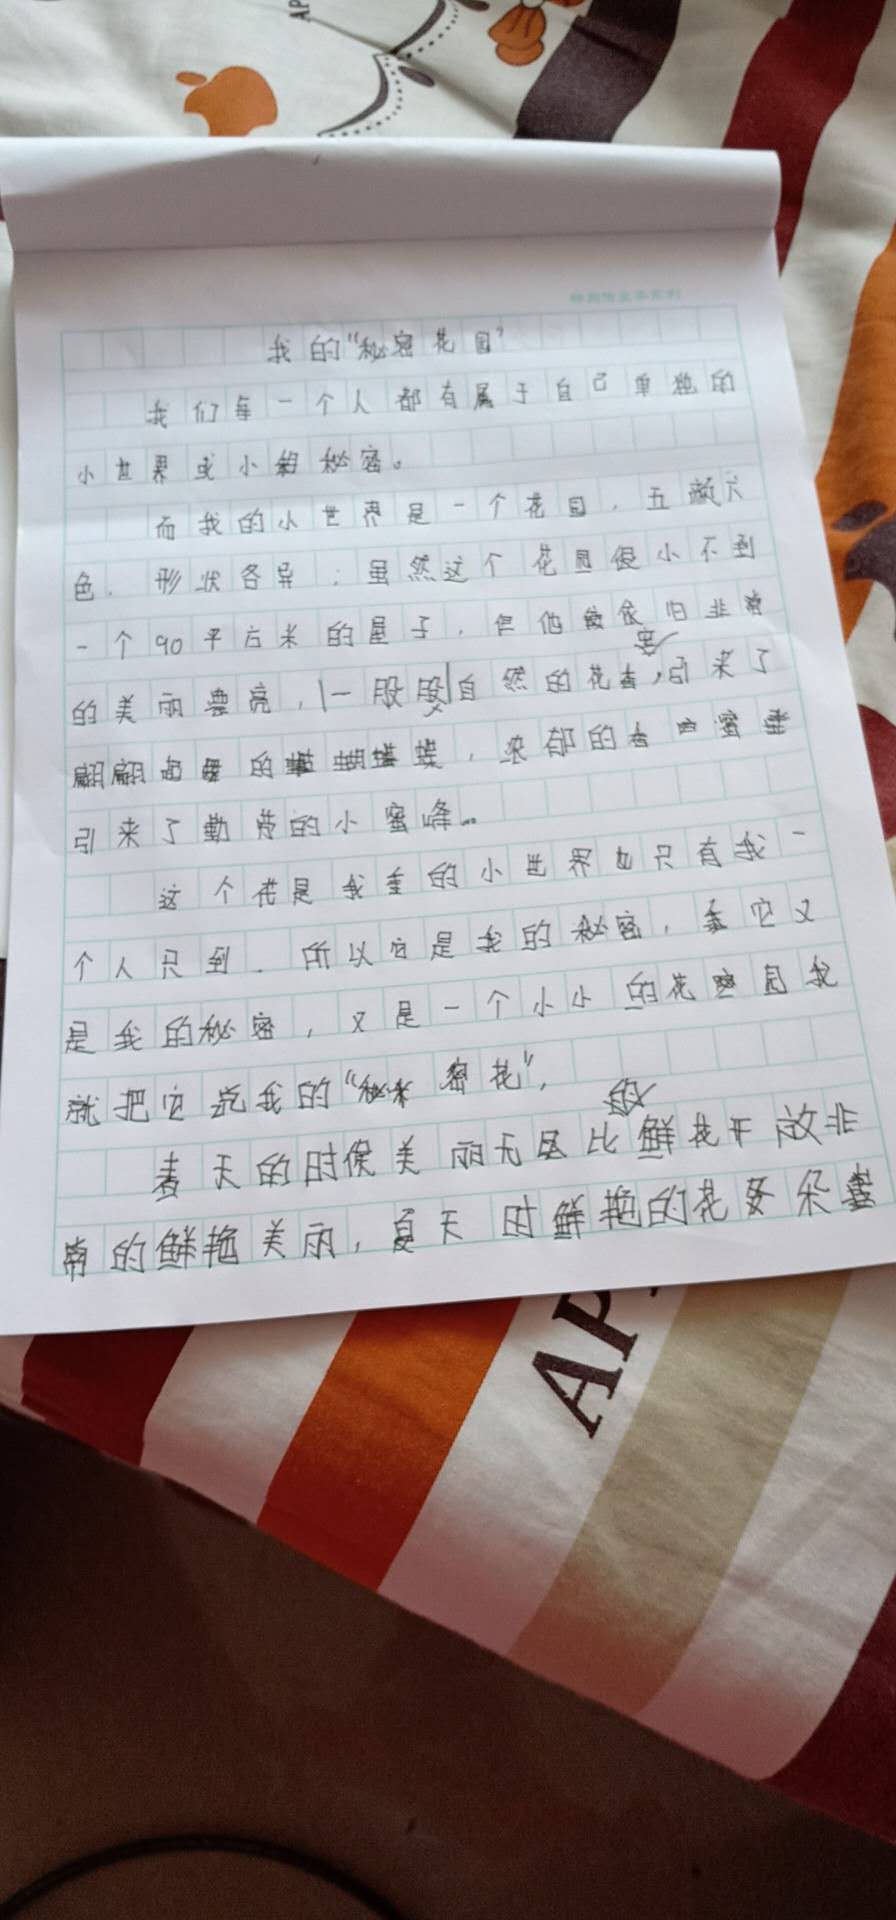 AP
我的“秘密花园”
我们每一个人都有属于自己单独的
小世界或小秘密。
而我的小世界是一个花园，五颜六
色．形状各异；虽然这个花园很小不到
一个90平方米的屋子，但他依旧非常
的美丽漂亮，一股股自然的花香，引来了
翩翩的蝴蝶，浓郁的蜜
引来了勤劳的小蜜峰。
这个花是我的小世界也只有我一
个人只到．所以它是我的秘密，它又
是我的秘密，又是一个小小的花园我
就把它说我的“秘密花”，
的
春天的时候美丽无比鲜花开放非
常的鲜艳美丽，夏天时鲜艳的花朵
AP